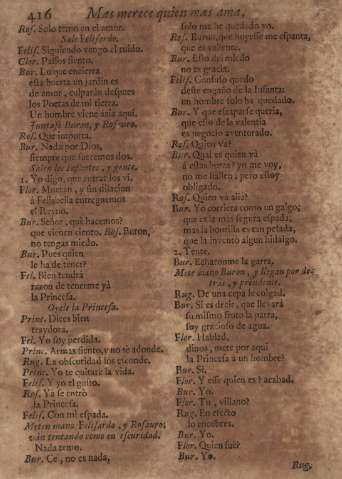 416 Mas merece quien mas ama,
Ros. Solo temo en el
Sale Felisardo.
Felis. Siguiendo vengo el ruido.
Clor. Passos siento.
Bur. Lo que encierra
esta huerta un jardin es
de amor, culparán despues
los Poetas de mi tierra.
Un hombre viene azia aqui.
Juntase Buron, y Rosauro.
Ros. Que importa.
Bur. Nada por Dios,
siempre que seremos dos.
Salen los Infantes, y gente.
1. Yo digo, que entrar los vi.
Flor. Mueran, y su dilacion
á Felisbella entreguemos
el Reyno.
Bur. Señor, qué hacemos?
que vienen ciento. Ros. Buron,
no tengas miedo.
Bur. Pues quien
le ha de tener?
Fel. Bien tendrá
razon de tenerme yá
la Princesa.
Oyele la Princesa.
Princ. Dices bien
traydora.
Fel. Yo soy perdida.
Princ. Armas siento, y no sé adonde.
Rug. La obscuridad los esconde.
Princ. Yo te quitaré la vida.
Felis. Y yo el guito.
Ros. Ya se entró
la Princesa.
Felis. Con mi espada.
Meten mano Felisardo, y Rosauro;
ván tentando como en escuridad.
Nada temo.
Bur. Ce, no es nada,
solo me he quedado yo.
Ros. Buron, que huyesse me espanta,
que es valiente.
Bur. Esto del miedo
no es gracia.
Felis. Confuso quedo
deste engaño de la Infanta:
un hombre solo ha quedado.
Bur. Y que escaparse queria,
que esto de la valentia
es negocio aventurado.
Ros. Quien vá?
Bur. Qual es quien vá
á esta hora? yo me voy,
no me hallen; pero estoy
obligado.
Ros. Quien vá allá?
Bur. Yo corriera como un galgo;
que es la mas segura espada;
mas la honrilla es tan pelada,
que la inventó algun hidalgo.
2. Tente.
Bur. Echaronme la garra.
Mete mano Buron, y llegan por de-
tràs, y prendenle.
Rug. De una cepa le colgad.
Bur. Si es decir, que llevará
su mismo fruto la parra,
soy gracioso de agua.
Flor. Hablad,
dinos, mete por aqui
la Princesa á un hombre?
Bur. Si.
Flor. Y esse quien es? acabad.
Bur. Yo.
Flor. Tu, villano?
Rug. En efecto
lo encubres.
Bur. Yo.
Flor. Quien fue?
Bur. Yo.
Rug,